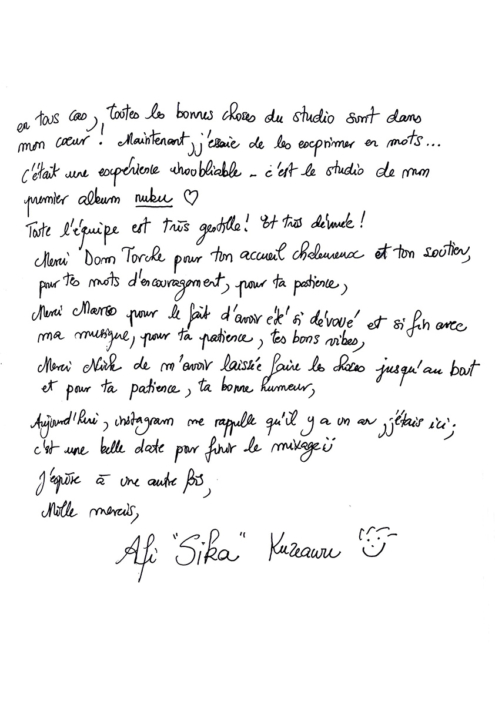 en tous cas, toutes les bonnes choses du studio sont dans
mon cœur ! Maintenant, j'essaie de les exprimer en mots...
C'était une expérience inoubliable - c'est le studio de mon
premier album nuku ♡
Toute l'équipe est très gentille ! Et très dévouée !
Merci Dom Torche pour ton accueil chaleureux et ton soutien,
pour tes mots d'encouragement, pour ta patience,
Merci Marco pour le fait d'avoir été si dévoué et si fin avec
ma musique, pour ta patience, tes bons vibes,
Merci Nick de m'avoir laissée faire les choses jusqu'au bout
et pour ta patience, ta bonne humeur,
Aujourd'hui, instagram me rappelle qu'il y a un an, j'étais ici ;
c'est une belle date pour finir le mixage
J'espère à une autre fois,
Mille mercis,
Afi "Sika" Kuzeawu